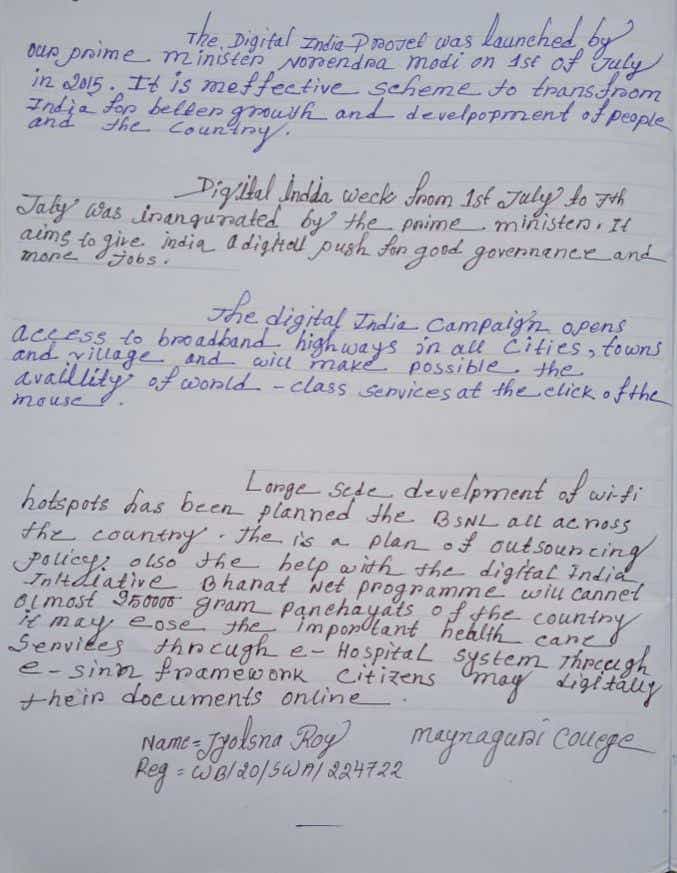 The Digital India Projet was launched by
our prime minister Norendra modi on 1st of July
in 2015. It is meffective scheme to transfrom
India for better growth and develpopment of people
and the country.
Digital Indda week from 1st July to 7th
Jaly was inangurated by the prime minister. It
aims to give india a digitall push for good governance and
more jobs.
The digital India Campaign opens
access to broadband highways in all Cities, towns
and village and will make possible the
availlity of world - class services at the click of the
mouse.
Longe scde develpment of wi-fi
hotspots has been planned the BSNL all across
the country. the is a plan of outsourcing
policy. also the help with the digital India
Initalative Bharat Net programme will cannel
almost 250000 gram panchayats of the country
it may ease the important health care
Services through e- Hospital system Threcgh
e - sinn framework Citizens may digitally
their documents online.
Name = Jyotsna Roy Maynaguri College
Reg = WB/20/SWA/224722